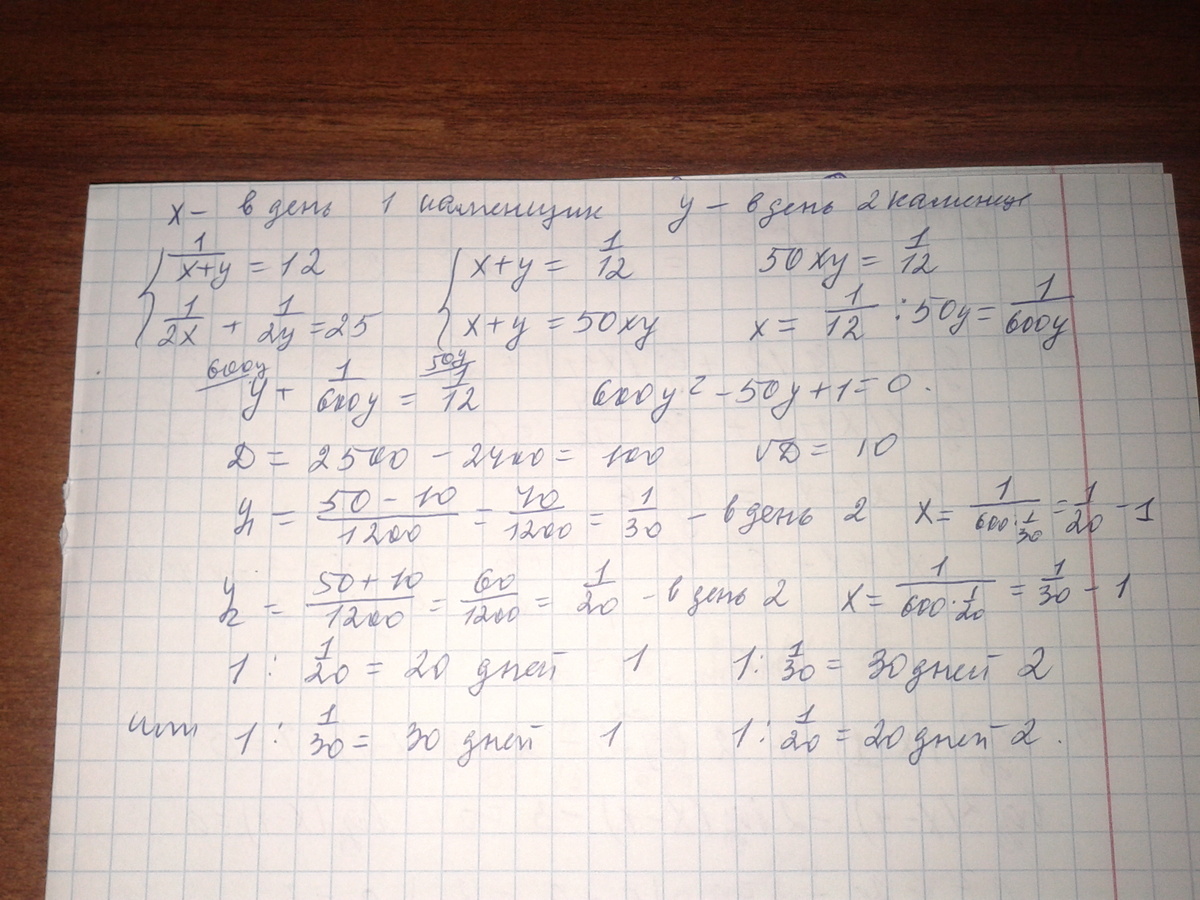 x – в день 1 каменщик y – в день 2 каменщ
{ 1/(x+y) = 12 { x+y = 1/12 50xy = 1/12
1/(2x) + 1/(2y) = 25 x+y = 50xy x = 1/12 : 50y = 1/(600y)
600y 50y
y + 1/(600y) = 1/12 600y² – 50y + 1 = 0.
D = 2500 – 2400 = 100 √D = 10
y₁ = (50 – 10)/1200 = 40/1200 = 1/30 – в день 2 x = 1/(600·1/30) = 1/20 – 1
y₂ = (50 + 10)/1200 = 60/1200 = 1/20 – в день 2 x = 1/(600·1/20) = 1/30 – 1
1 : 1/20 = 20 дней 1 1 : 1/30 = 30 дней 2
или 1 : 1/30 = 30 дней 1 1 : 1/20 = 20 дней 2.